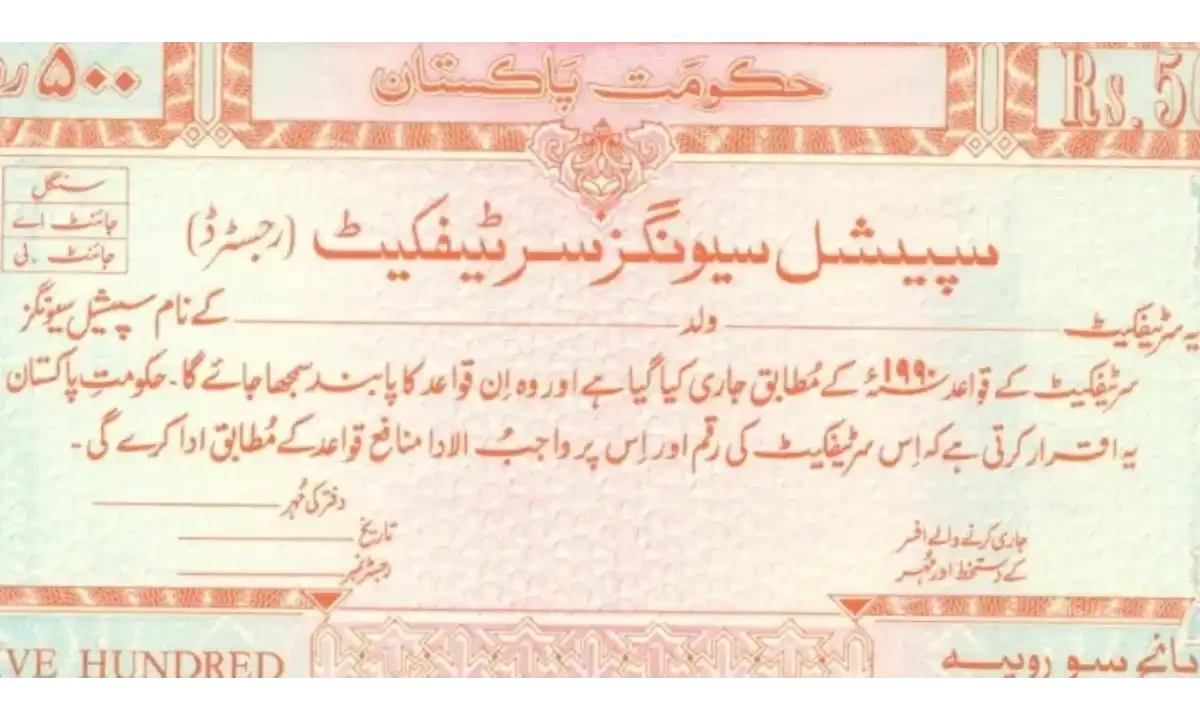 ۵۰۰
حکومت پاکستان
Rs. 50
سنگل
جائنٹ اے
جائنٹ ۔بی
سپیشل سیونگز سرٹیفکیٹ (رجسٹرڈ)
یہ سرٹیفکیٹ ________ ولد ________ کے نام سپیشل سیونگز
سرٹیفکیٹ کے قواعد ۱۹۹۰ء کے مُطابق جاری کیا گیا ہے اور وہ اِن قواعد کا پابند سمجھا جائے گا۔ حکومتِ پاکستان
یہ اقرار کرتی ہے کہ اِس سرٹیفکیٹ کی رقم اور اِس پر واجبُ الادا منافع قواعد کے مُطابق ادا کرے گی۔
دفتر کی مُہر
تاریخ
رجسٹر نمبر
جاری کرنے والے افسر
کے دستخط اور مُہر
VE HUNDRED
پانچ سو روپیہ